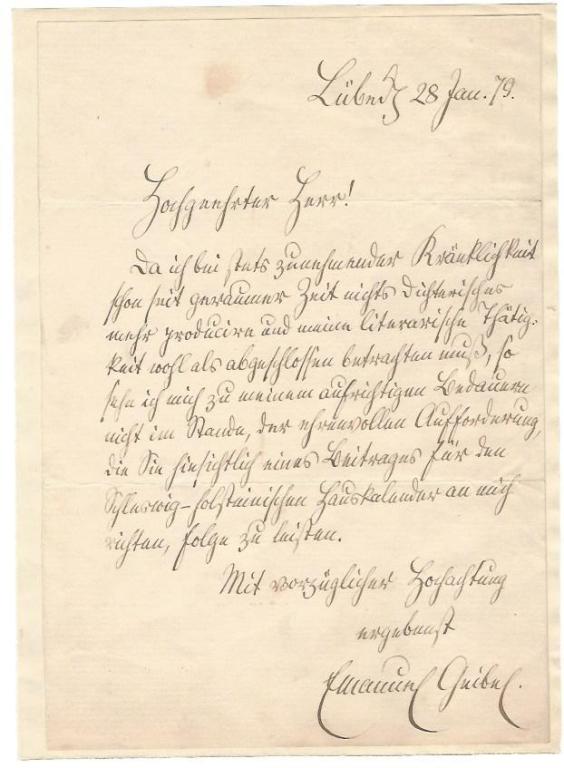 Lübeck 28 Jan. 79.
Hochgeehrter Herr!
Da ich bei stets zunehmender Kränklichkeit
schon seit geraumer Zeit nichts Dichterisches
mehr producire und meine literarische Thätig-
keit wohl als abgeschlossen betrachten muß, so
sehe ich mich zu meinem aufrichtigen Bedauern
nicht im Stande, der ehrenvollen Aufforderung,
die Sie hinsichtlich eines Beitrages für den
Schleswig-holsteinischen Hauskalender an mich
richten, folge zu leisten.
Mit vorzüglicher Hochachtung
ergebenst
Emanuel Geibel.